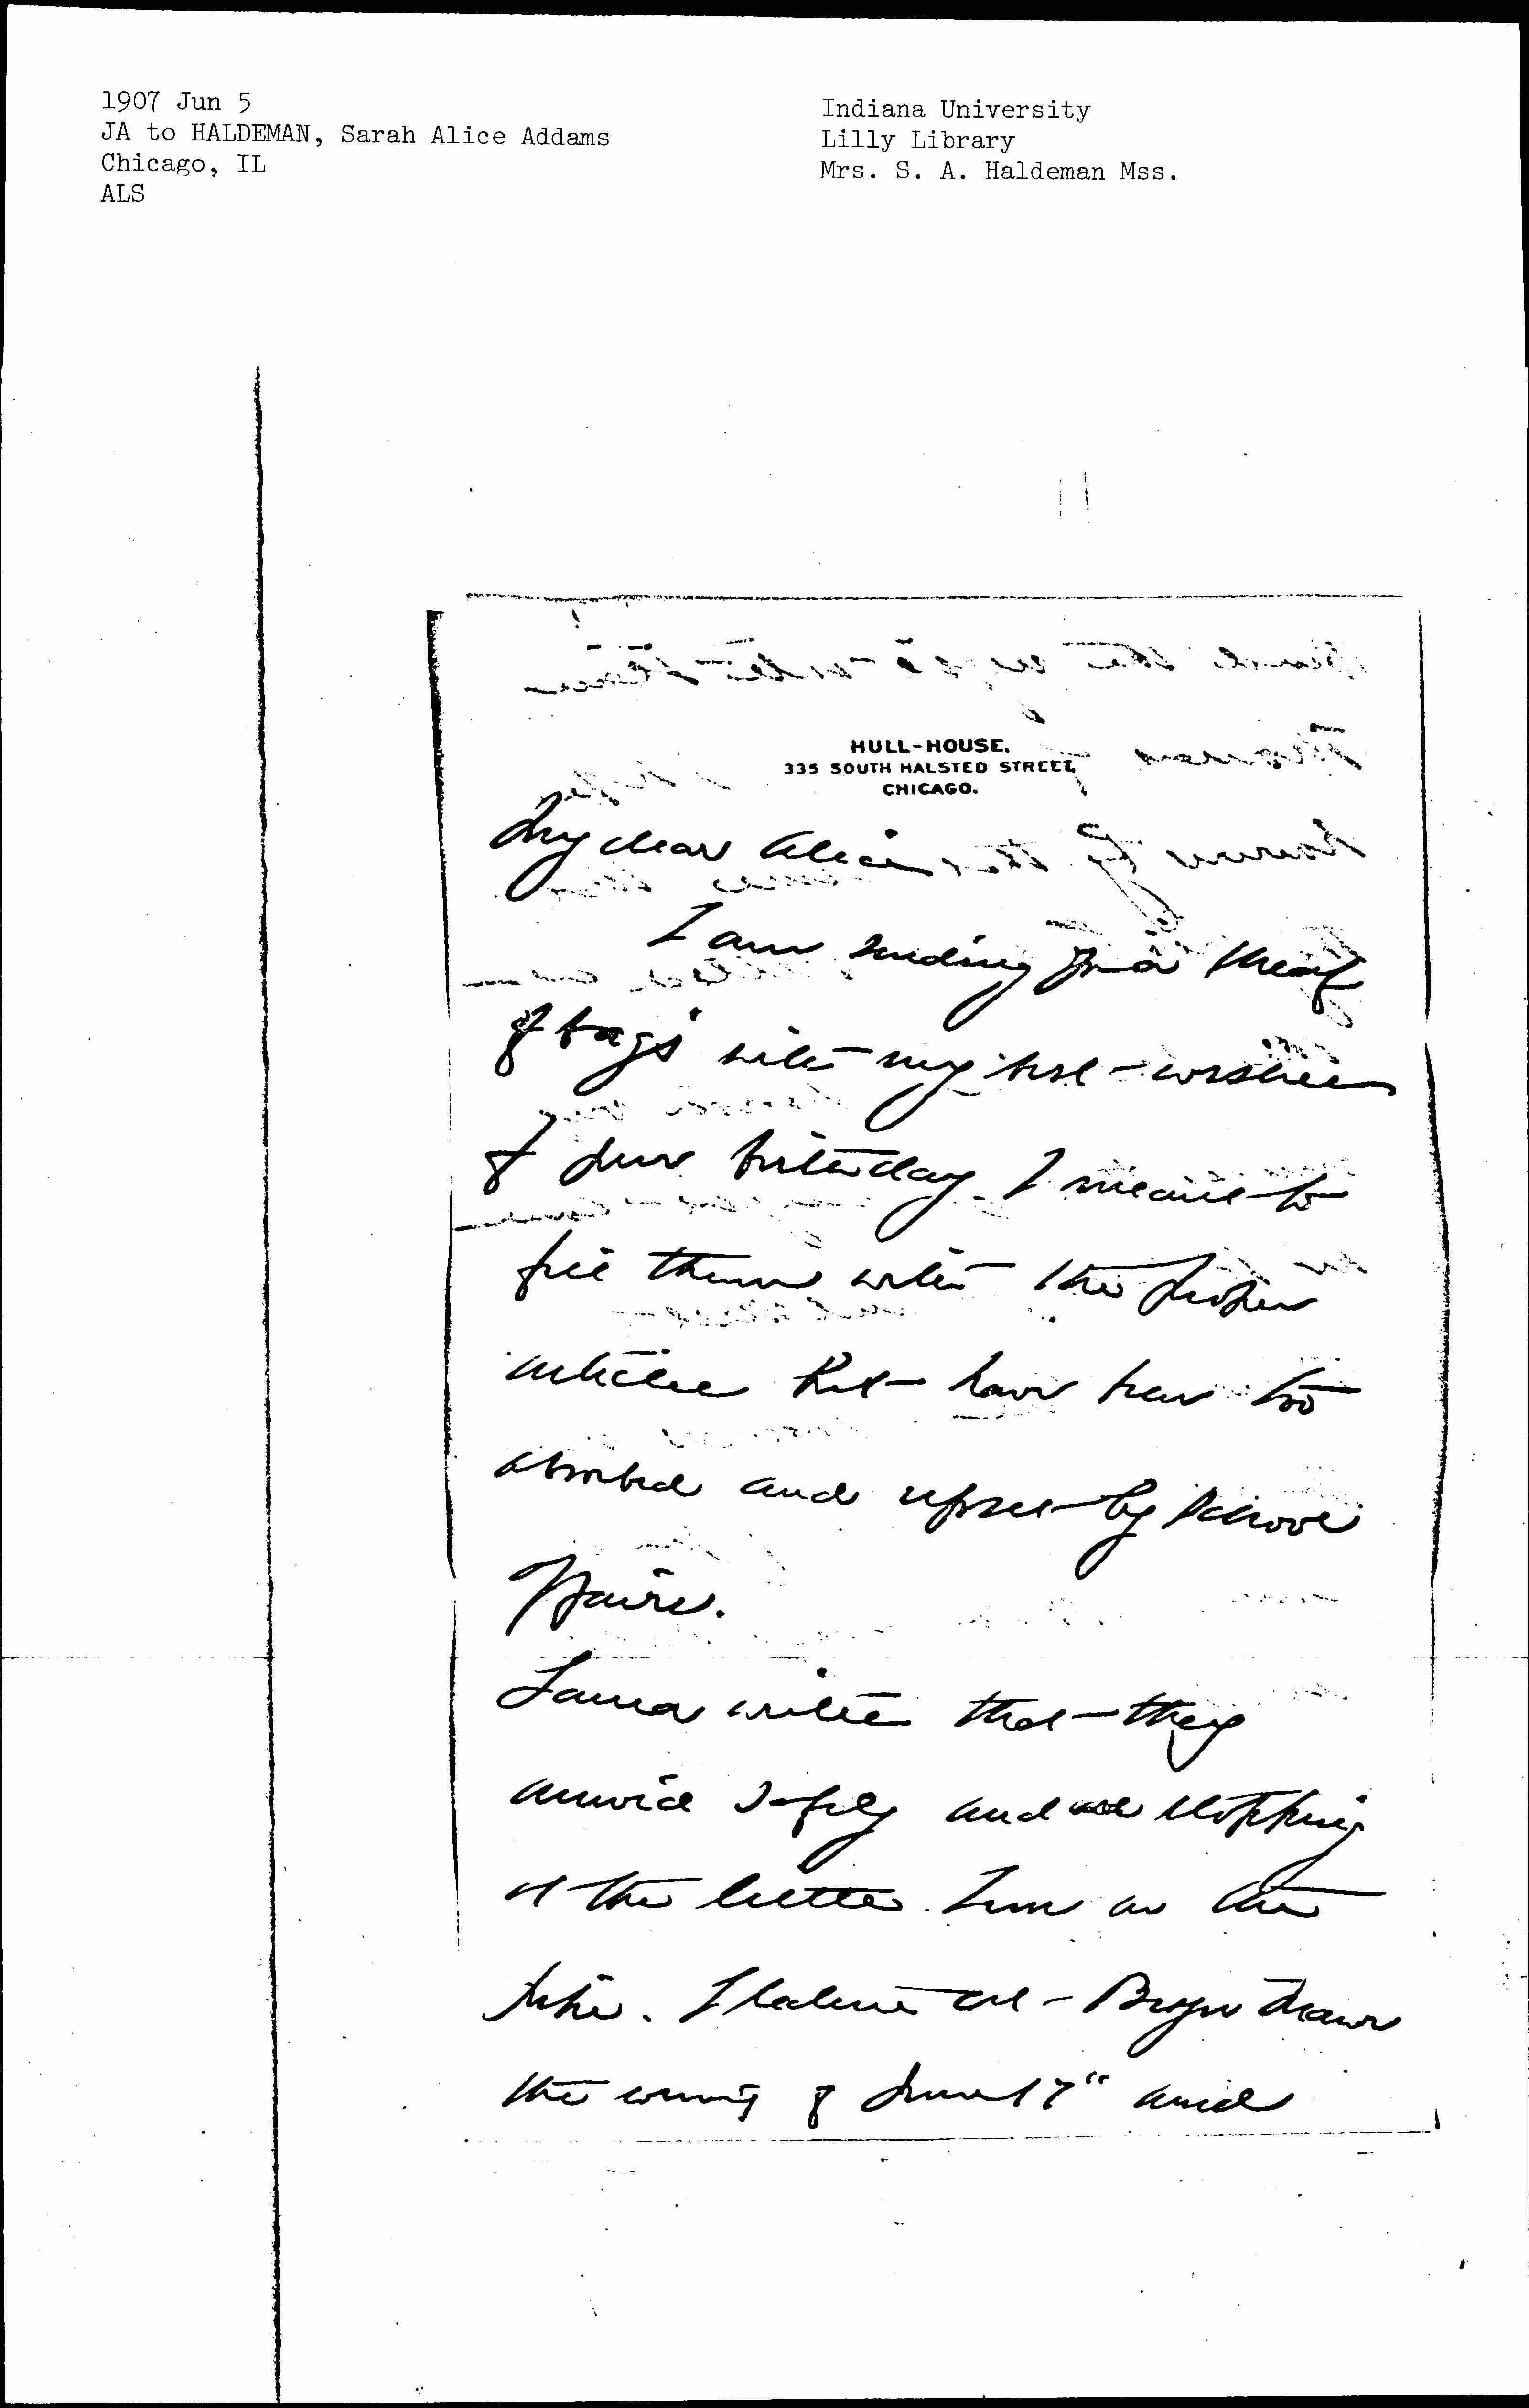 1907 Jun 5
JA to HALDEMAN, Sarah Alice Addams
Chicago, IL
ALS
Indiana University
Lilly Library
Mrs. S. A. Haldeman Mss.
HULL-HOUSE.
335 SOUTH HALSTED STREET,
CHICAGO.
My dear Alice
I am sending you a
of bags with my best wishes
of your birthday. I meant to
fill them with the proper
articles but have been too
absorbed and upset by school
affairs.
Laura writes that they
arrived safely and are stopping
at the little Inn as the
I lecture at Bryn Mawr
the evening of June 17" and